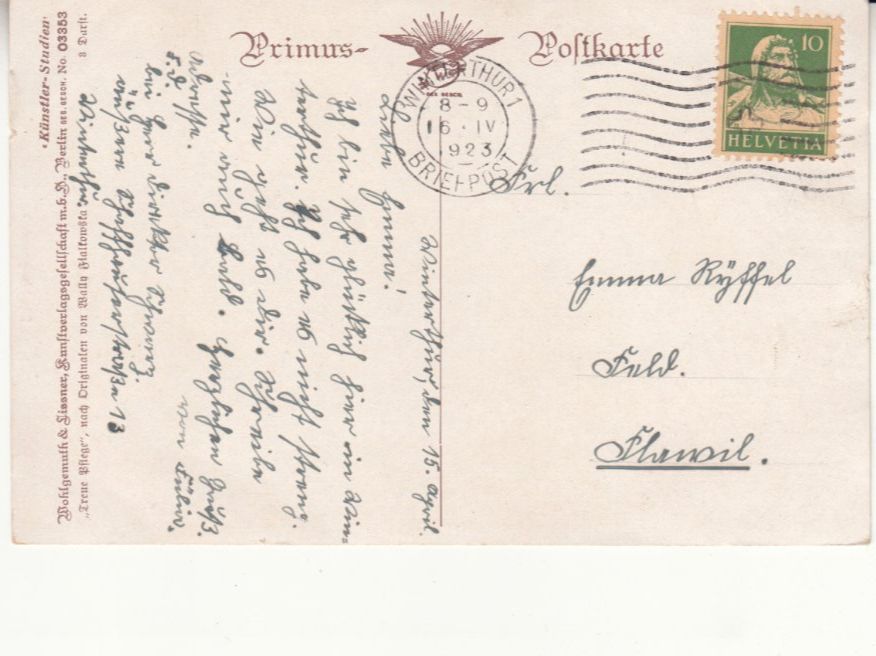 Primus- Postkarte
GES. GESCH.
WINTERTHUR 1
8-9
16.IV
1923
BRIEFPOST
10
HELVETIA
Frl.
Emma Ryffel
Feld.
Flawil.
Winterthur, den 15. April.
Liebe Emma!
Ich bin sehr glücklich hier in Win-
terthur. Ich habe es nicht streng.
Wie geht es dir. Schreibe
mir auch bald. Herzlichen Gruß.
von
Adresse.
bei Herr Direktor
äußere Schaffhauserstraße 13
Winterthur.
·Künstler-Studien·
Wohlgemuth & Lissner, Kunstverlagsgesellschaft m.b.H., Berlin GES. GESCH. No. 03353
„Treue Pflege“, nach Originalen von Wally Fialkowska 8 Darst.